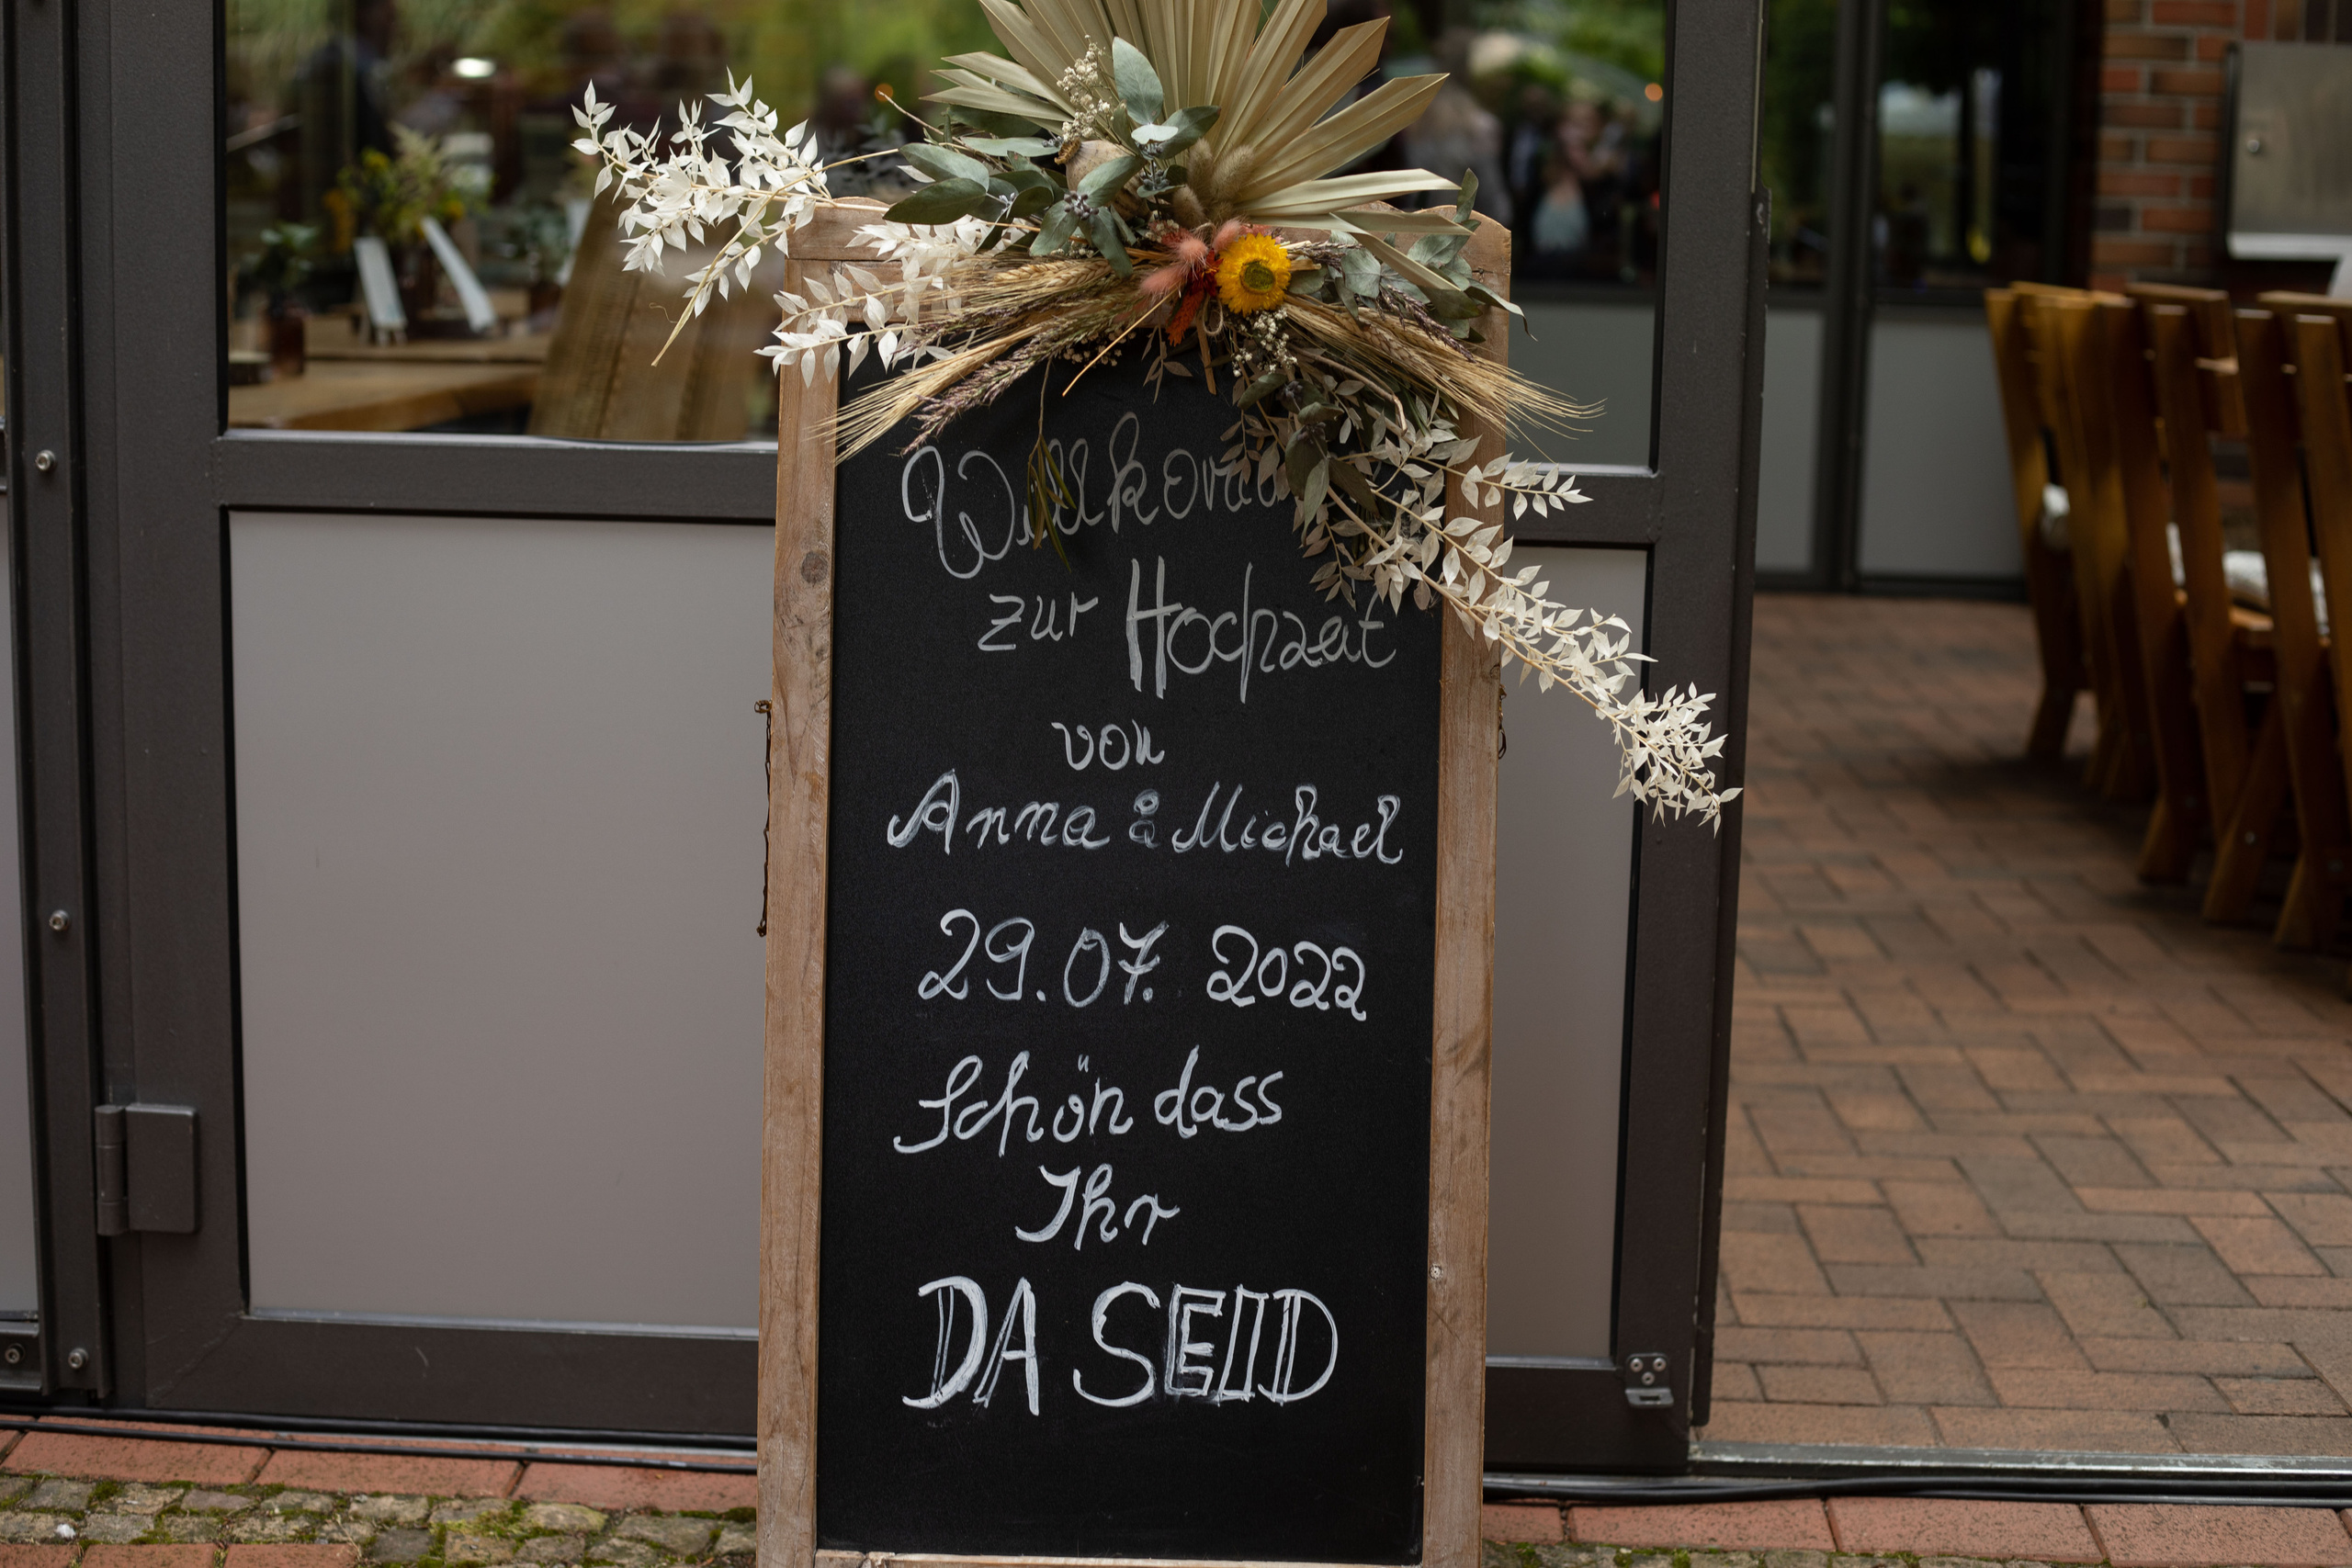 Willkommen
zur Hochzeit
von
Anna & Michael
29.07. 2022
Schön dass
Ihr
DA SEID